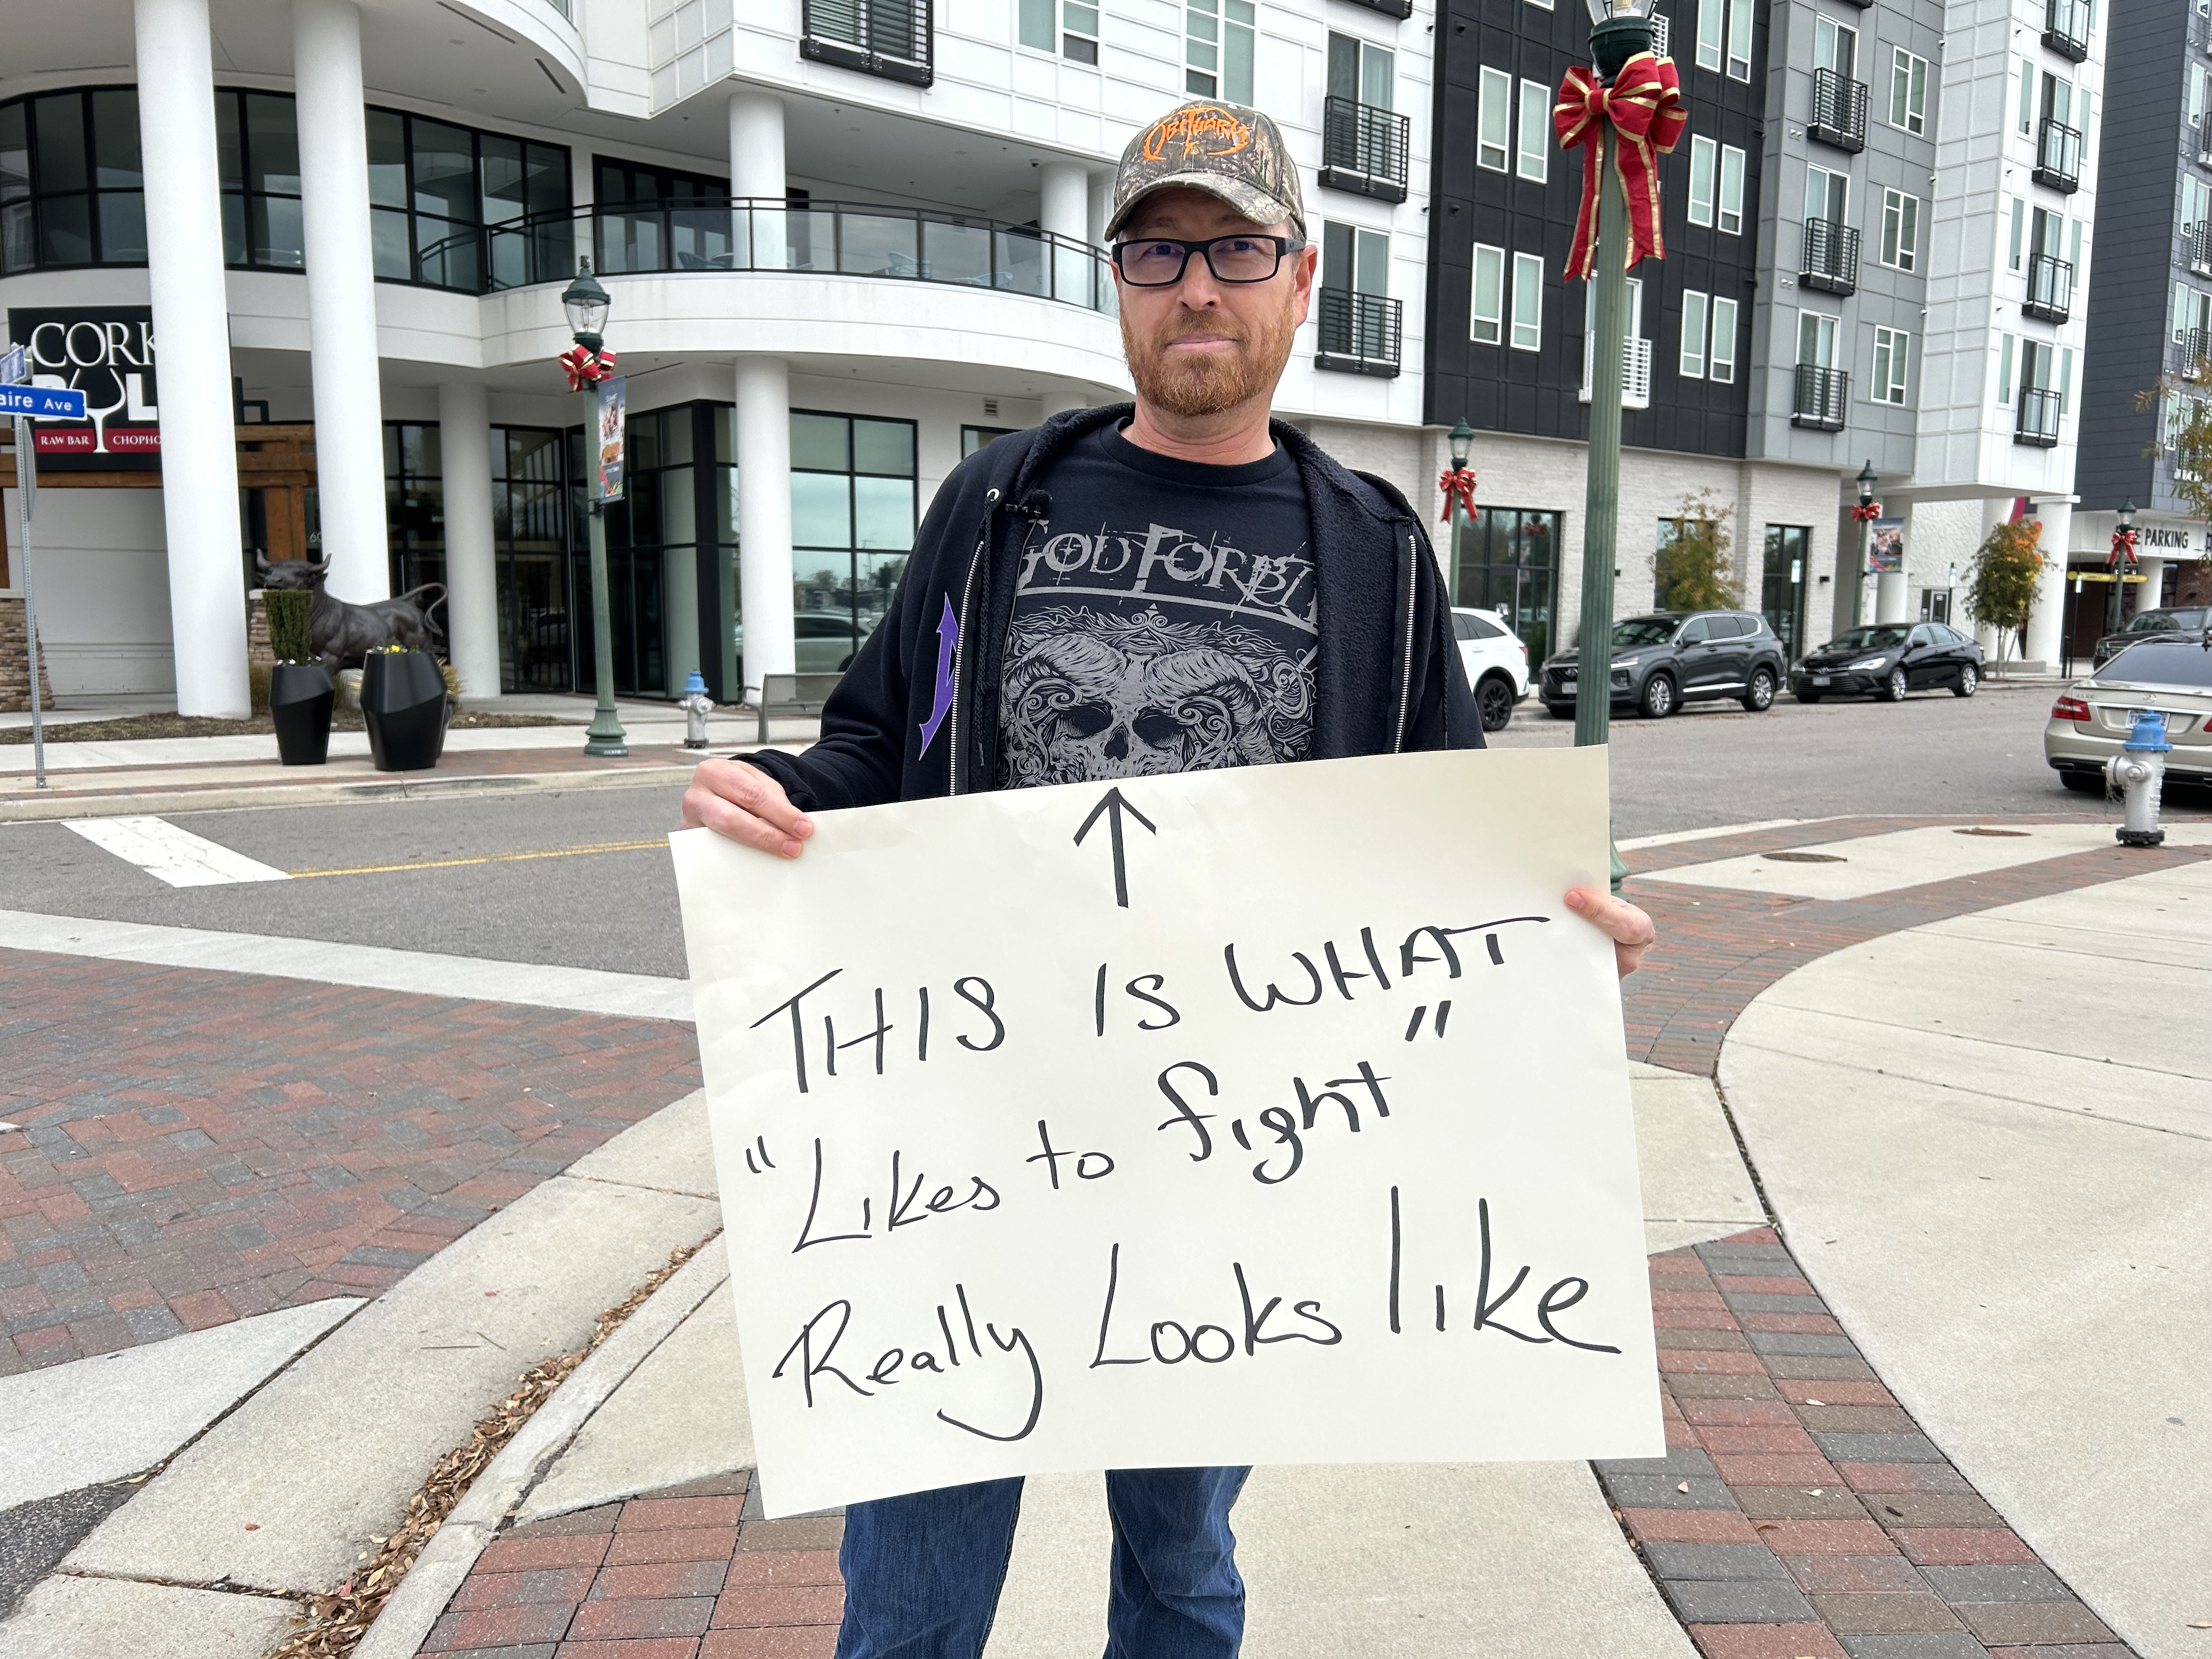 OBITUARY
CORK
RAW BAR
Ave
GOD FORBID
PARKING
THIS IS WHAT
"Likes to fight"
Really Looks like